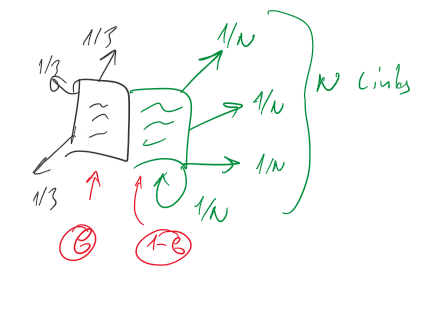 1/3
1/3
1/3
1/N
1/N
1/N
1/N
N links
1-